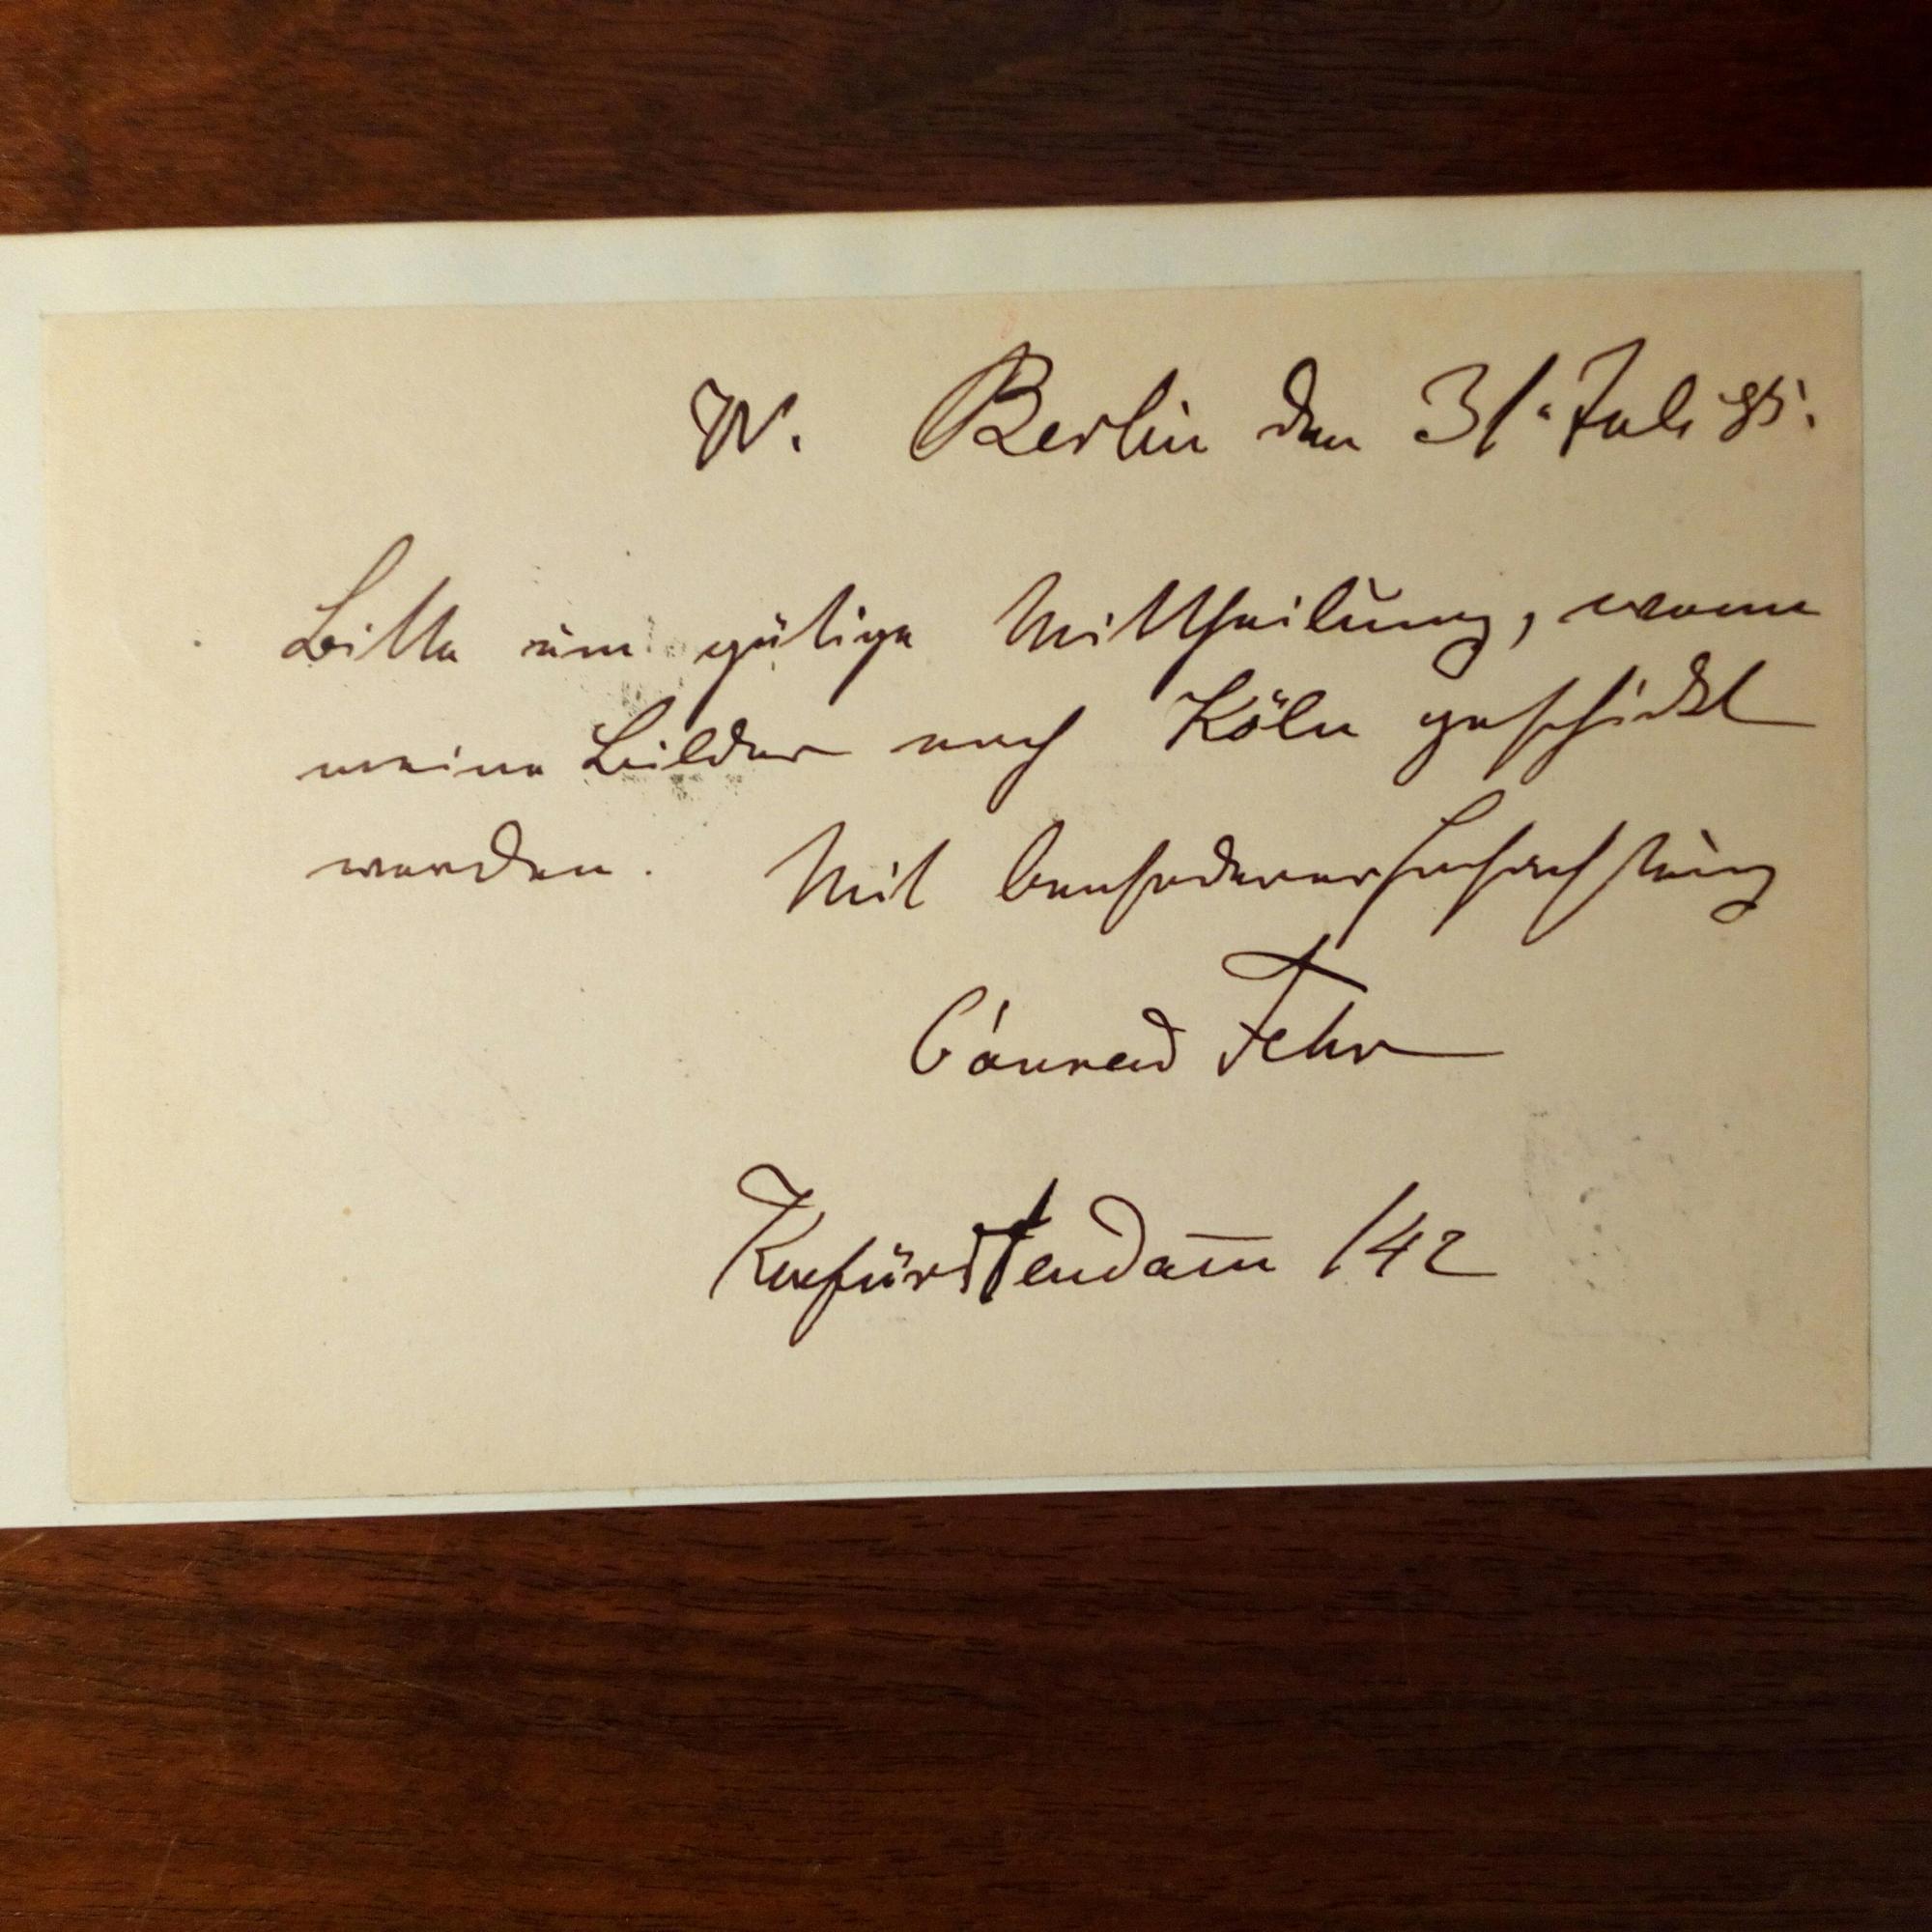 W. Berlin den 31. Juli 95.
Bitte um gütige Mittheilung, wann
meine Bilder nach Köln geschickt
werden. Mit besonderer Hochachtung
Conrad Fehr
Kurfürstendam̅ 142